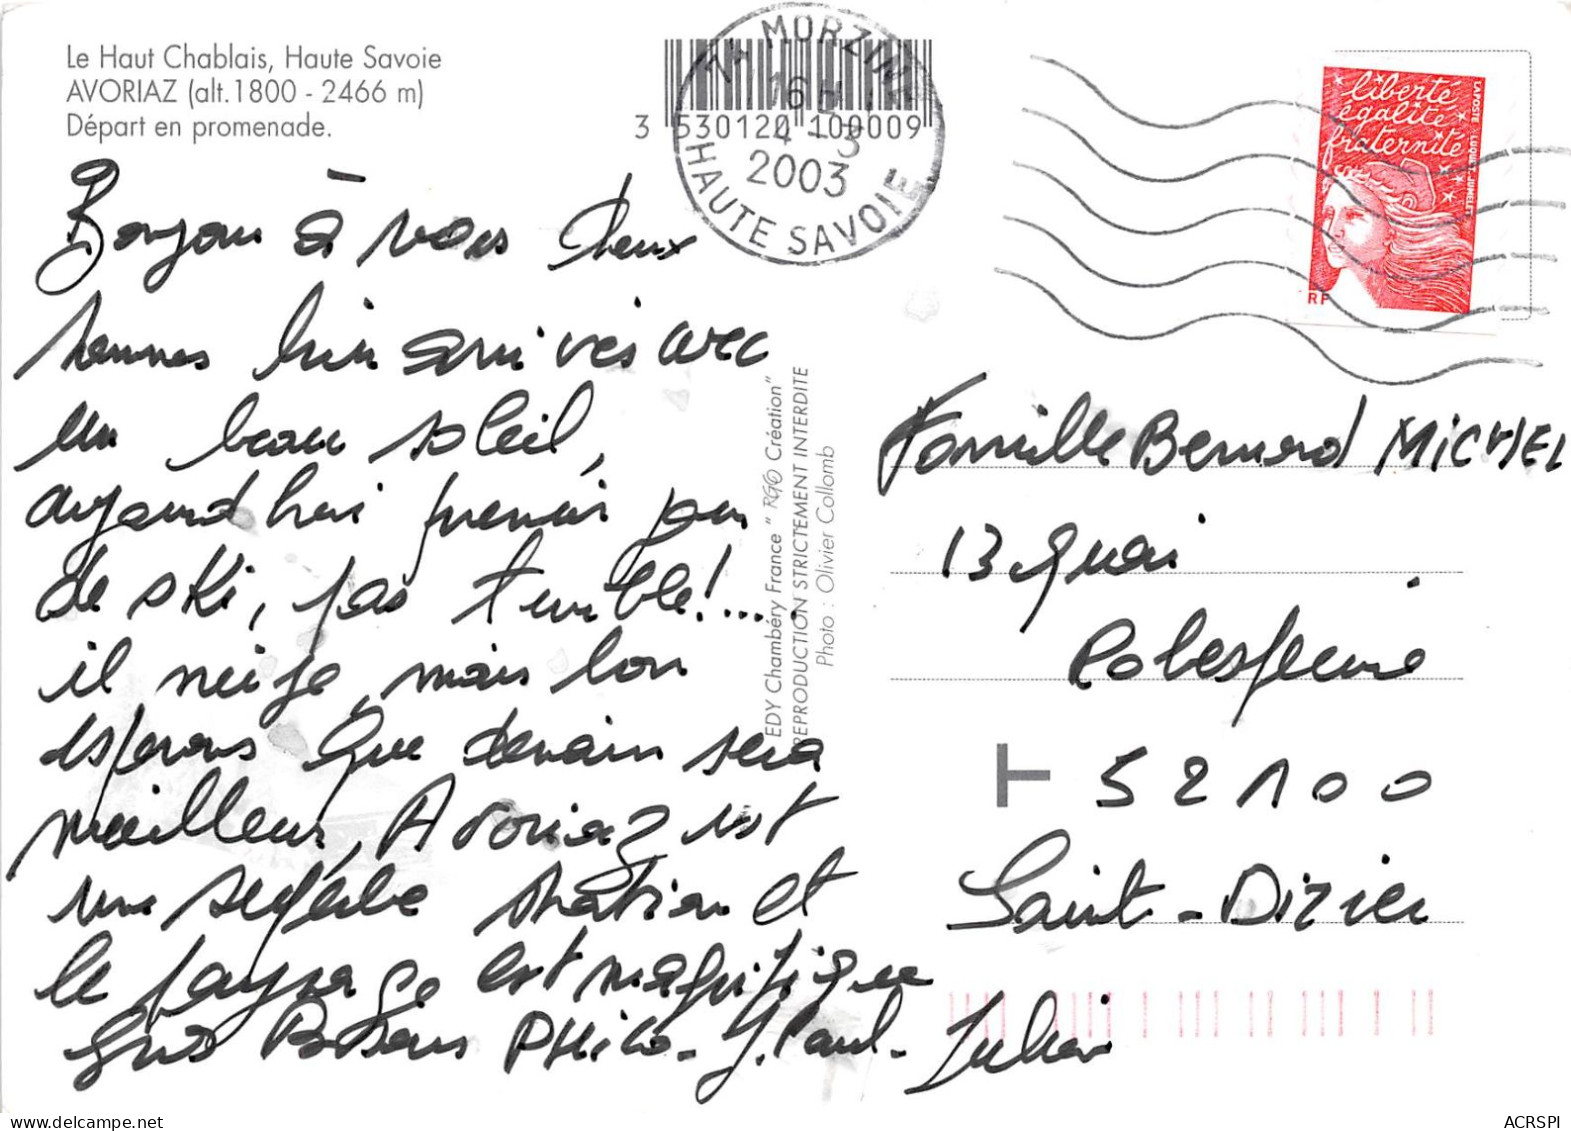 Le Haut Chablais, Haute Savoie
AVORIAZ (alt.1800 - 2466 m)
Départ en promenade.
3 530120 100009
74 MORZINE
16 H
4 - 3
2003
HAUTE SAVOIE
liberté
égalité
fraternité
LA POSTE LUQUET-JUMELET
RF
Bonjour à vous deux
sommes bien arrivés avec
un beau soleil,
aujourd'hui premier jour
de ski, pas terrible!....
il neige, mais bon
esperons que demain sera
meilleur, Avoriaz est
une superbe station et
le paysage est magnifique
Gros Bisous PHilo - J.Paul - Julien
EDY Chambéry France " RGO Création"
REPRODUCTION STRICTEMENT INTERDITE
Photo : Olivier Collomb
Famille Bernard MICHEL
13 quai
Robespierre
T 52100
Saint-Dizier
ACRSPI